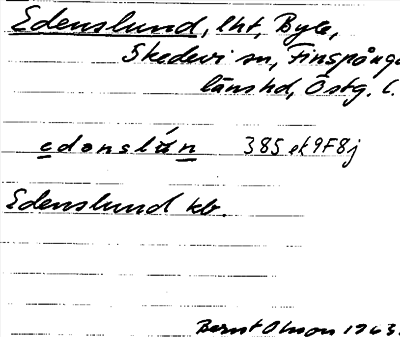 Edenslund, lht, Byle,
Skedevi sn, Finspånga
länshd, Östg. l.
edanslún 385 ek 9F8j
Edenslund kb.
Bernt Olsson 1963.